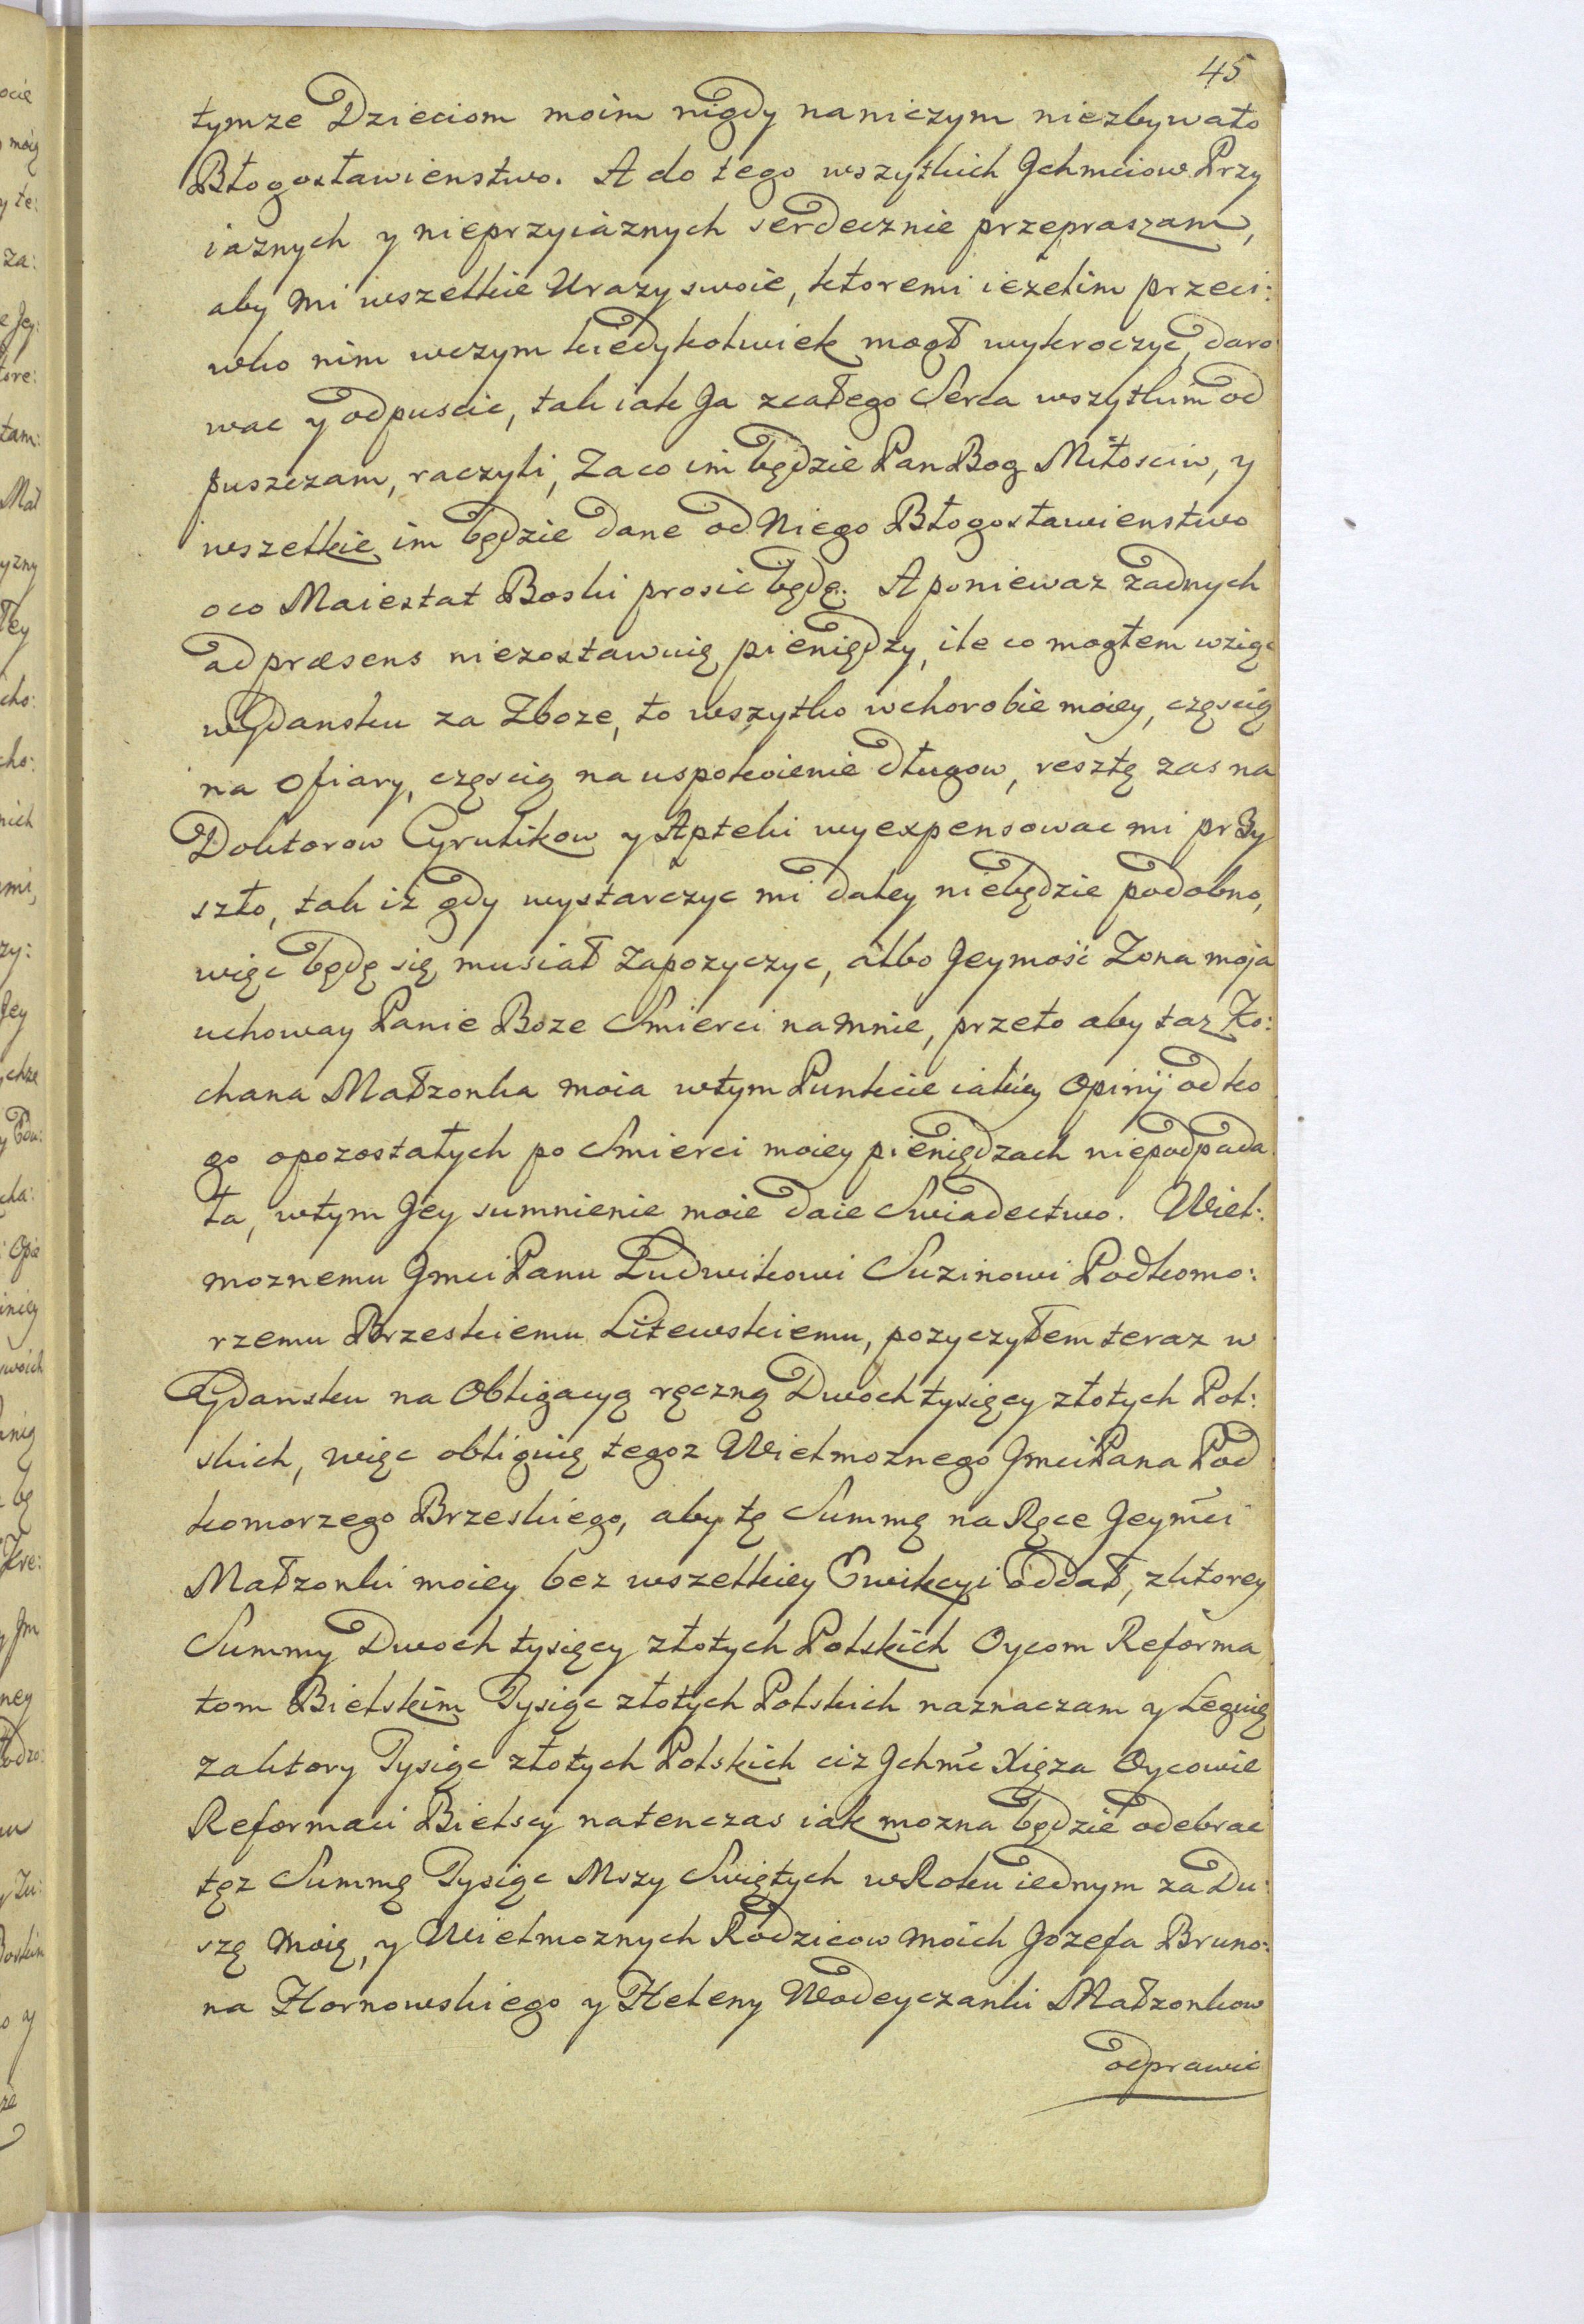 45
tymze Dzieciom moim nigdy naniczym niezbywało
Błogosławienstwo. A do tego wszytkich Jchmciow Przy
iaznych y nieprzyiaznych serdecznie przepraszam,
aby mi wszelkie Urazy swoie, ktoremi ieżelim przeci:
wko nim wczym kiedykolwiek mogł wykroczyć, daro
wac y odpuscic, tak iak Ja zcałego Serca wszytkim od
puszczam, raczyli, Zaco im będzie Pan Bog Miłosciw, y
wszelkie im będzie dane od Niego Błogosławienstwo
oco Maiestat Boski prosic będę. A poniewaz żadnych
ad præsens niezostawuię pieniędzy, ile co mogłem wziąc
w Gdansku za Zboze, to wszytko w chorobie moiey, częscią
na Ofiary, częscią na uspokoienie długow, resztę zas na
Doktorow Cyrulikow y Apteki wyexpensowac mi przy
szło, tak iż gdy wystarczyc mi daley niebędzie podobno,
więc będę się musiał Zapozyczyc, albo Jeymość Zona moja
uchoway Panie Boze Smierci na mnie, przeto aby taz Ko:
chana Małzonka moia wtym Punkcie iakiey Opinij od ko
go opozostałych po Smierci moiey pieniędzach niepodpada
ła, wtym Jey sumnienie moie daie Swiadectwo. Wiel:
moznemu Jmci Panu Ludwikowi Suzinowi Podkomo:
rzemu Brzeskiemu Litewskiemu, pozyczyłem teraz w
Gdansku na Obligacyą ręczną Dwoch tysięcy złotych Pol:
skich, więc obliguię tegoz Wielmoznego Jmci Pana Pod
komorzego Brzeskiego, aby tę Summę na Ręce Jeymci
Małzonki moiey bez wszelkiey Ewikcyi oddał, z ktorey
Summy Dwoch tysięcy złotych Polskich Oycom Reforma
tom Bielskim Tysiąc złotych Polskich naznaczam y Leguię
za ktory Tysiąc złotych Polskich ciz Jchmc Xięza Oycowie
Reformaci Bielscy natenczas iak mozna będzie odebrac
tęz Summę Tysiąc Mszy Swiętych w Roku iednym za Du:
szę moię, y Wielmoznych Rodzicow moich Jozefa Bruno:
na Hornowskiego y Heleny Wodeyczanki Małzonkow
odprawić